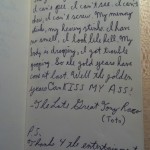 I can't pee, I can't see, I can't
die, I can't screw. My memory
stinks, my hearing stinks. I can
no smell, I look like hell. My
body is drooping, I got trouble
pooping. So the gold years have
come at last. Well the golden
years can KISS MY ASS!
- The Late Great Tony
(Toto)
P.S.
Thanks 4 the entertainment